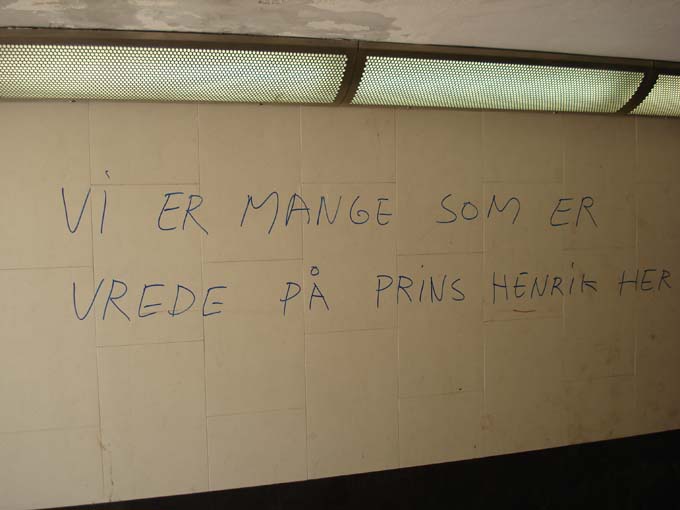 Vi ER MANGE SOM ER
VREDE PÅ PRiNS HENRiK HER